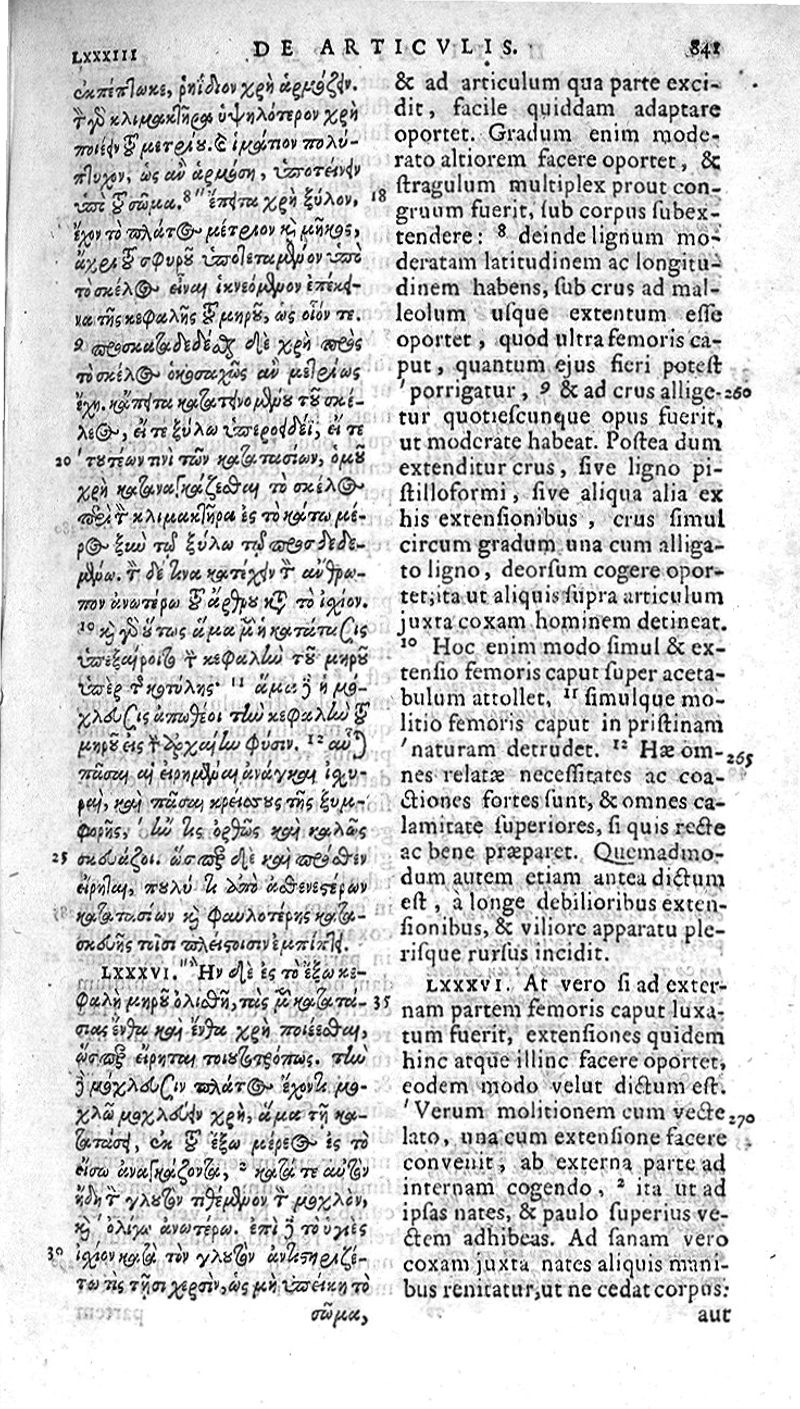 LXXXIII DE ARTICVLIS. 841
ἐκπέπτωκε, ῥηίδιον χρὴ ἁρμόζειν.
τὸν γὰρ κλιμακτῆρα ὑψηλότερον χρὴ
ποιέειν τοῦ μετρίου. καὶ ἱμάτιον πολύ-
πτυχον, ὡς ἂν ἁρμόσῃ, ὑποτείνειν
ὑπὸ τοῦ σῶμα. 8 " ἔπειτα χρὴ ξύλον,
ἔχον τὸ πλάτος μέτριον καὶ μῆκος,
ἄχρι τοῦ σφυροῦ ὑποτεταμένον ὑπὸ
τὸ σκέλος εἶναι ἱκνεόμενον ἐπέκει-
να τῆς κεφαλῆς τοῦ μηροῦ, ὡς οἷόν τε.
9 προσκαταδεδέσθαι δὲ χρὴ πρὸς
τὸ σκέλος ὁκοσαχῶς ἂν μετρίως
ἔχῃ. κἄπειτα κατατεινομένου τοῦ σκέ-
λεος, εἴ τε ξύλῳ ὑπεροειδεῖ, εἴ τε
20 'τουτέων τινὶ τῶν κατατασίων, ὁμοῦ
χρὴ καταναγκάζεσθαι τὸ σκέλος
περὶ τὸν κλιμακτῆρα ἐς τὸ κάτω μέ-
ρος ξὺν τῷ ξύλῳ τῷ προσδεδε-
μένῳ. τὸν δέ τινα κατέχειν τὸν ἄνθρω-
πον ἀνωτέρω τοῦ ἄρθρου κατὰ τὸ ἰσχίον.
10 καὶ γὰρ οὕτως ἅμα μὲν ἡ κατάτασις
ὑπεξαίροι ἂν τὴν κεφαλὴν τοῦ μηροῦ
ὑπὲρ τῆς κοτύλης· 11 ἅμα δὲ ἡ μό-
χλευσις ἀπωθέοι τὴν κεφαλὴν τοῦ
μηροῦ εἰς τὴν ἀρχαίην φύσιν. 12 αὗται
πᾶσαι αἱ εἰρημέναι ἀνάγκαι ἰσχυ-
ραὶ, καὶ πᾶσαι κρείσσους τῆς ξυμ-
φορῆς, ἤν τις ὀρθῶς καὶ καλῶς
25 σκευάζοι. ὥσπερ δὲ καὶ πρόσθεν
εἴρηται, πουλύ τι ἀπὸ ἀσθενεστέρων
κατατασίων καὶ φαυλοτέρης κατα-
σκευῆς τοῖσι πλείστοισιν ἐμπίπτει.
LXXXVI. "Ἢν δὲ ἐς τὸ ἔξω κε-
φαλὴ μηροῦ ὀλίσθῃ, τὰς μὲν κατατά-
σιας ἔνθα καὶ ἔνθα χρὴ ποιέεσθαι,
ὥσπερ εἴρηται τοιουτοτρόπως. τὴν
δὲ μόχλευσιν πλάτος ἔχοντι μο-
χλῷ μοχλεύειν χρὴ, ἅμα τῇ κα-
τατάσει, ἐκ τοῦ ἔξω μέρεος ἐς τὸ
εἴσω ἀναγκάζοντα, 2 κατά τε αὐτὸν
ἤδη τὸν γλουτὸν τιθέμενον τὸν μοχλὸν,
καὶ ὀλίγῳ ἀνωτέρω. ἐπὶ δὲ τὸ ὑγιὲς
30 ἰσχίον κατὰ τὸν γλουτὸν ἀντιστηριζέ-
τω τις τῇσι χερσὶν, ὡς μὴ ὑπείκῃ τὸ
σῶμα,
& ad articulum qua parte exci-
dit, facile quiddam adaptare
oportet. Gradum enim mode-
rato altiorem facere oportet, &
stragulum multiplex prout con-
18 gruum fuerit, sub corpus subex-
tendere: 8 deinde lignum mo-
deratam latitudinem ac longitu-
dinem habens, sub crus ad mal-
leolum usque extentum esse
oportet, quod ultra femoris ca-
put, quantum ejus fieri potest
'porrigatur, 9 & ad crus allige- 260
tur quotiescunque opus fuerit,
ut moderate habeat. Postea dum
extenditur crus, sive ligno pi-
stilloformi, sive aliqua alia ex
his extensionibus, crus simul
circum gradum una cum alliga-
to ligno, deorsum cogere opor-
tet; ita ut aliquis supra articulum
juxta coxam hominem detineat.
10 Hoc enim modo simul & ex-
tensio femoris caput super aceta-
bulum attollet, 11 simulque mo-
litio femoris caput in pristinam
'naturam detrudet. 12 Hæ om- 265
nes relatæ necessitates ac coa-
ctiones fortes sunt, & omnes ca-
lamitate superiores, si quis recte
ac bene præparet. Quemadmo-
dum autem etiam antea dictum
est, à longe debilioribus exten-
sionibus, & viliore apparatu ple-
risque rursus incidit.
LXXXVI. At vero si ad exter-
35 nam partem femoris caput luxa-
tum fuerit, extensiones quidem
hinc atque illinc facere oportet,
eodem modo velut dictum est.
'Verum molitionem cum vecte 270
lato, una cum extensione facere
convenit, ab externa parte ad
internam cogendo, 2 ita ut ad
ipsas nates, & paulo superius ve-
ctem adhibeas. Ad sanam vero
coxam juxta nates aliquis mani-
bus renitatur, ut ne cedat corpus:
aut